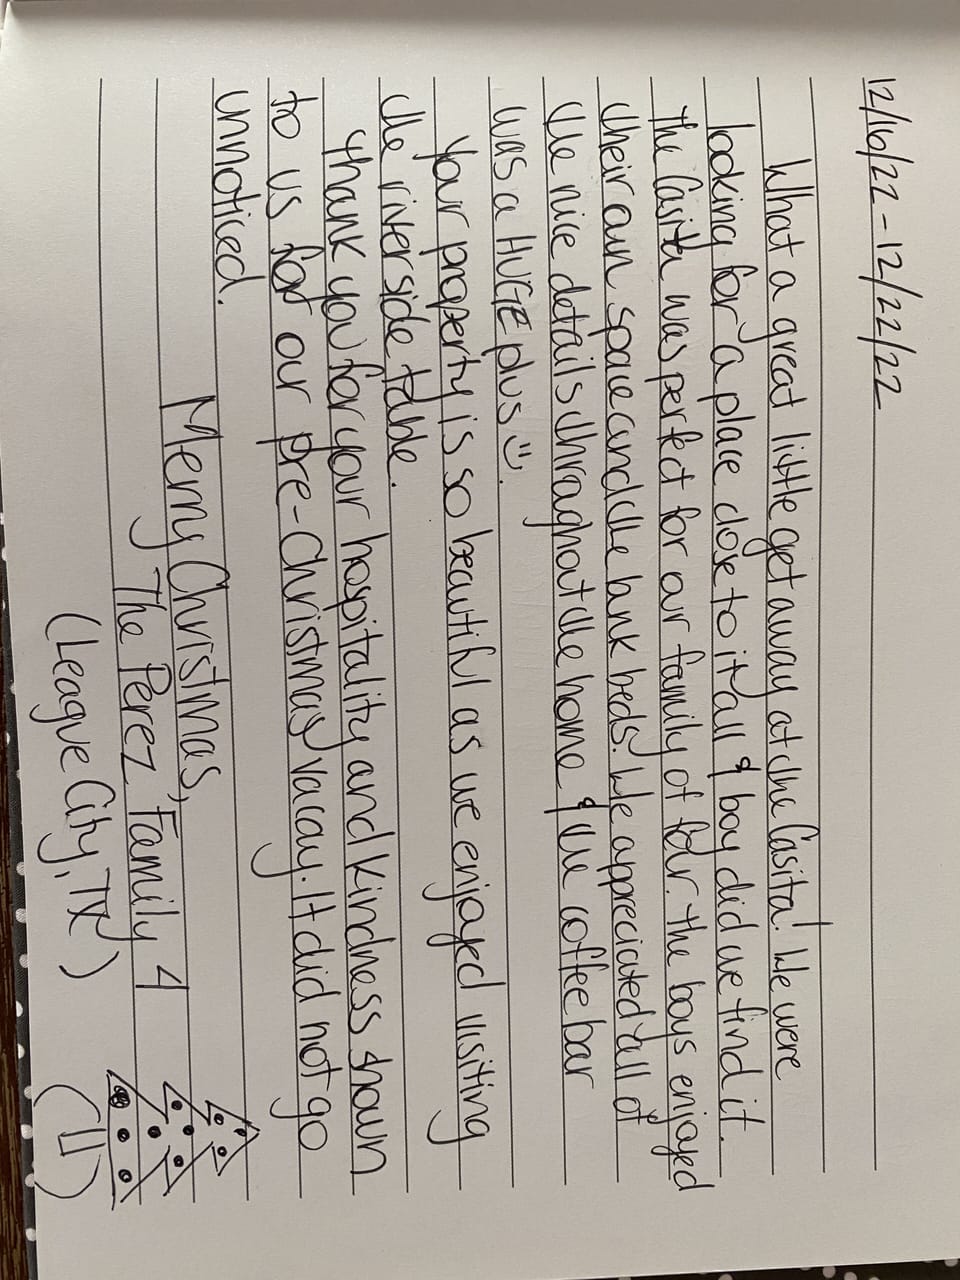 12/16/22-12/22/22
What a great little getaway at the Casita! We were
looking for a place close to it all & boy did we find it.
The Casita was perfect for our family of four. The boys enjoyed
their own space and the bunk beds. We appreciated all of
the nice details throughout the home & the coffee bar
was a HUGE plus :).
Your property is so beautiful as we enjoyed visiting
the river side table.
Thank you for your hospitality and kindness shown
to us for our pre-Christmas vacay. It did not go
unnoticed.
Merry Christmas,
The Perez Family 4
(League City, TX)